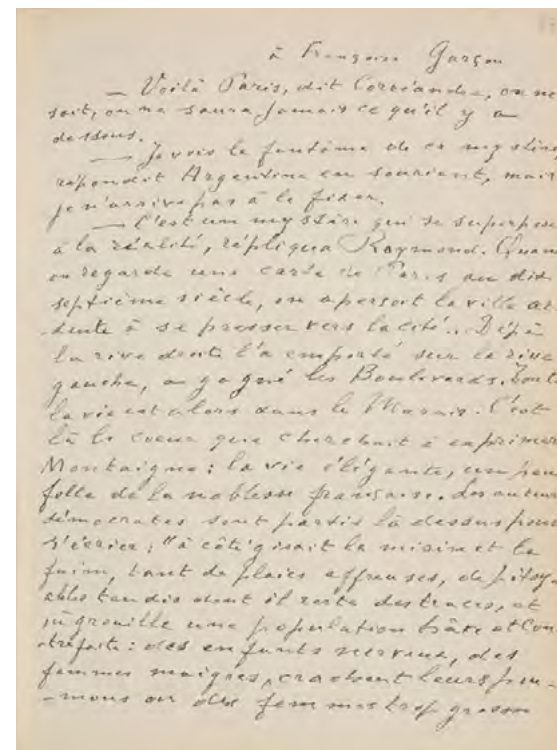 à Françoise Garçon
— Voilà Paris, dit Coriandre, on ne
sait, on ne saura jamais ce qu'il y a
dessous.
— Je vois le fantôme de ce mystère,
répondit Argentine en souriant, mais
je n'arrive pas à le fixer.
— C'est un mystère qui se superpose
à la réalité, répliqua Raymond. Quan
on regarde une carte de Paris au dix
septième siècle, on aperçoit la ville
à se presser vers la cité.. Déjà
la rive droite l'a emporté sur la rive
gauche, a gagné les Boulevards. Toute
la vie est alors dans le Marais. C'est
là le coeur que cherchait à exprimer
Montaigne : la vie élégante, un peu
folle de la noblesse française. Les auteurs
démocrates sont partis là dessus pour
s'écrier : "à côté gisait la misère et la
faim, tant de plaies affreuses, de pitoy-
ables taudis dont il reste des traces, et
où grouille une population hâve et con
trefaite : des enfants nerveux, des
femmes maigres, crachant leurs pou-
-mons ou des femmes trop grosses